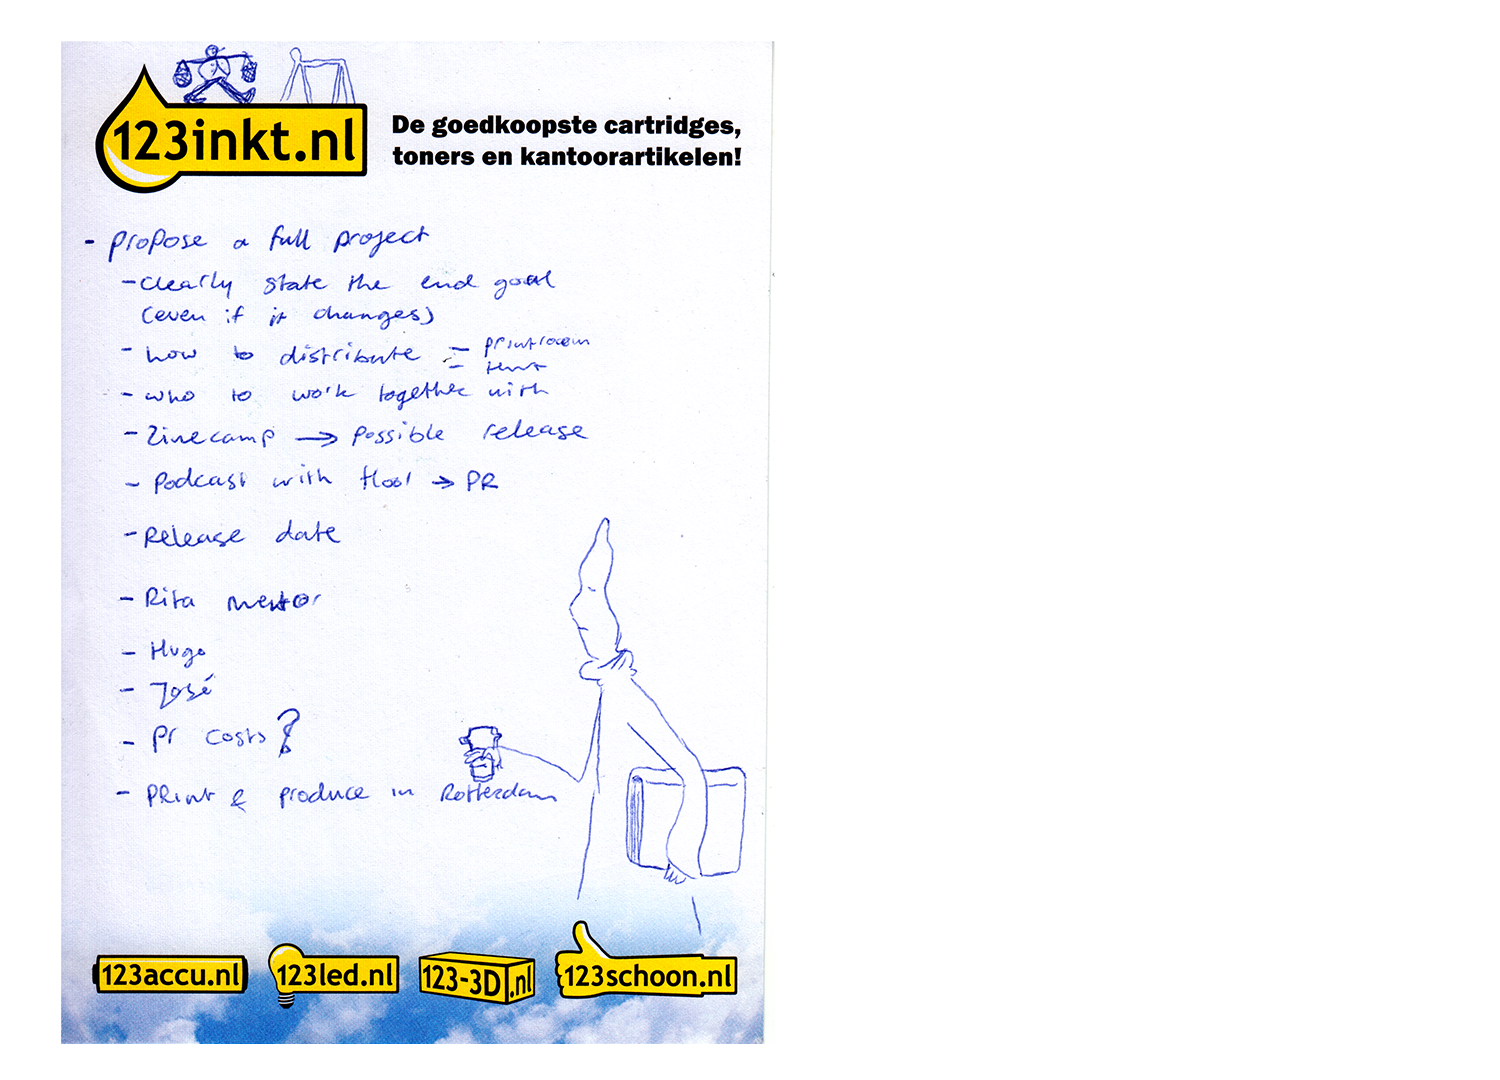 123inkt.nl
De goedkoopste cartridges,
toners en kantoorartikelen!
- propose a full project
- clearly state the end goal
(even if it changes)
- how to distribute - printroom
-
- who to work together with
- Zinecamp → possible release
- Podcast with → PR
- Release date
- Rita mentor
- Hugo
- José
- Pr costs?
- PRint & produce in Rotterdam
123accu.nl
123led.nl
123-3D.nl
123schoon.nl